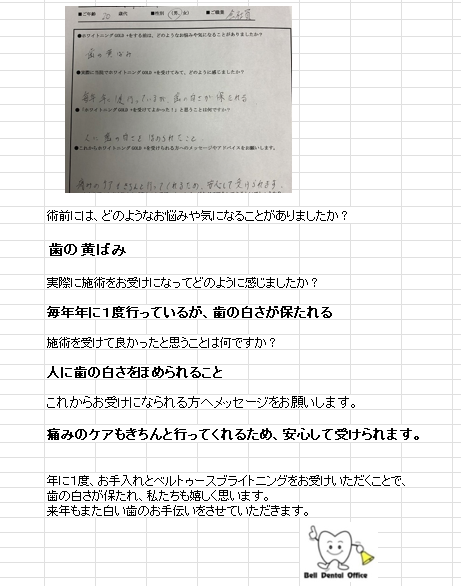 ●ご年齢 20 歳代 ●性別（男，女） ●ご職業 会社員
●ホワイトニングGOLD+をする前は、どのようなお悩みや気になることがありましたか？
歯の黄ばみ
●実際に当院でホワイトニングGOLD+を受けてみて、どのように感じましたか？
毎年年に1度行っているが、歯の白さが保たれる
●「ホワイトニングGOLD+を受けてよかった！」と思うことは何ですか？
人に歯の白さをほめられること
●これからホワイトニングGOLD+を受けられる方へのメッセージやアドバイスをお願いします。
痛みのケアもきちんと行ってくれるため、安心して受けられます。
術前には、どのようなお悩みや気になることがありましたか？
歯の黄ばみ
実際に施術をお受けになってどのように感じましたか？
毎年年に１度行っているが、歯の白さが保たれる
施術を受けて良かったと思うことは何ですか？
人に歯の白さをほめられること
これからお受けになられる方へメッセージをお願いします。
痛みのケアもきちんと行ってくれるため、安心して受けられます。
年に１度、お手入れとベルトゥースブライトニングをお受けいただくことで、
歯の白さが保たれ、私たちも嬉しく思います。
来年もまた白い歯のお手伝いをさせていただきます。
Bell Dental Office